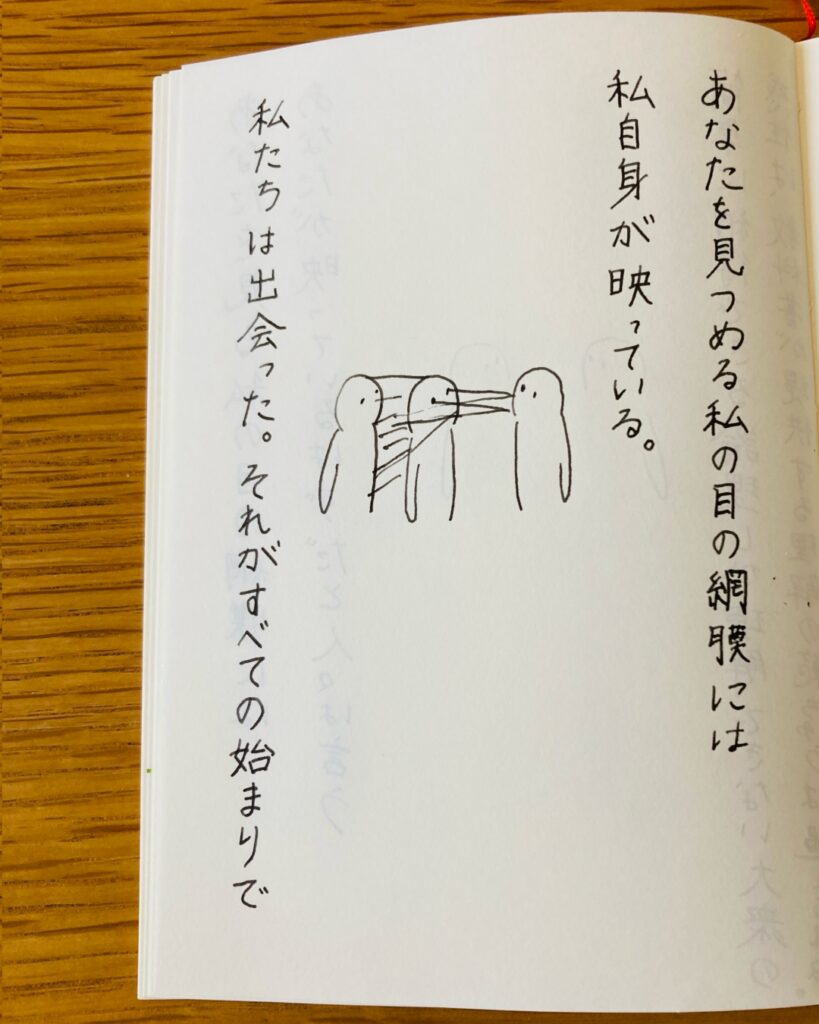 あなたを見つめる私の目の網膜には
私自身が映っている。
私たちは出会った。それがすべての始まりで